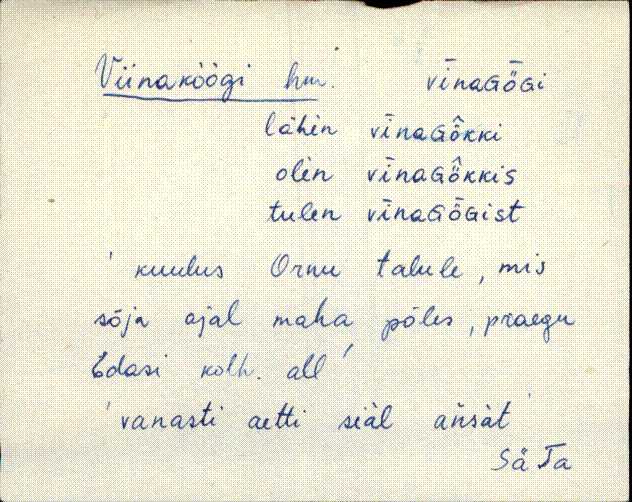 Viinaköögi hm. vīnaGȫGi
lähen vīnaGö̂kki
olèn vīnaGö̂kkis
tulen vīnaGȫGist
' kuulus Ornu talule, mis
sõja ajal maha põles, praegu
Edasi kolh. all '
' vanasti aetti siäl ańsàt '
Sä Ta